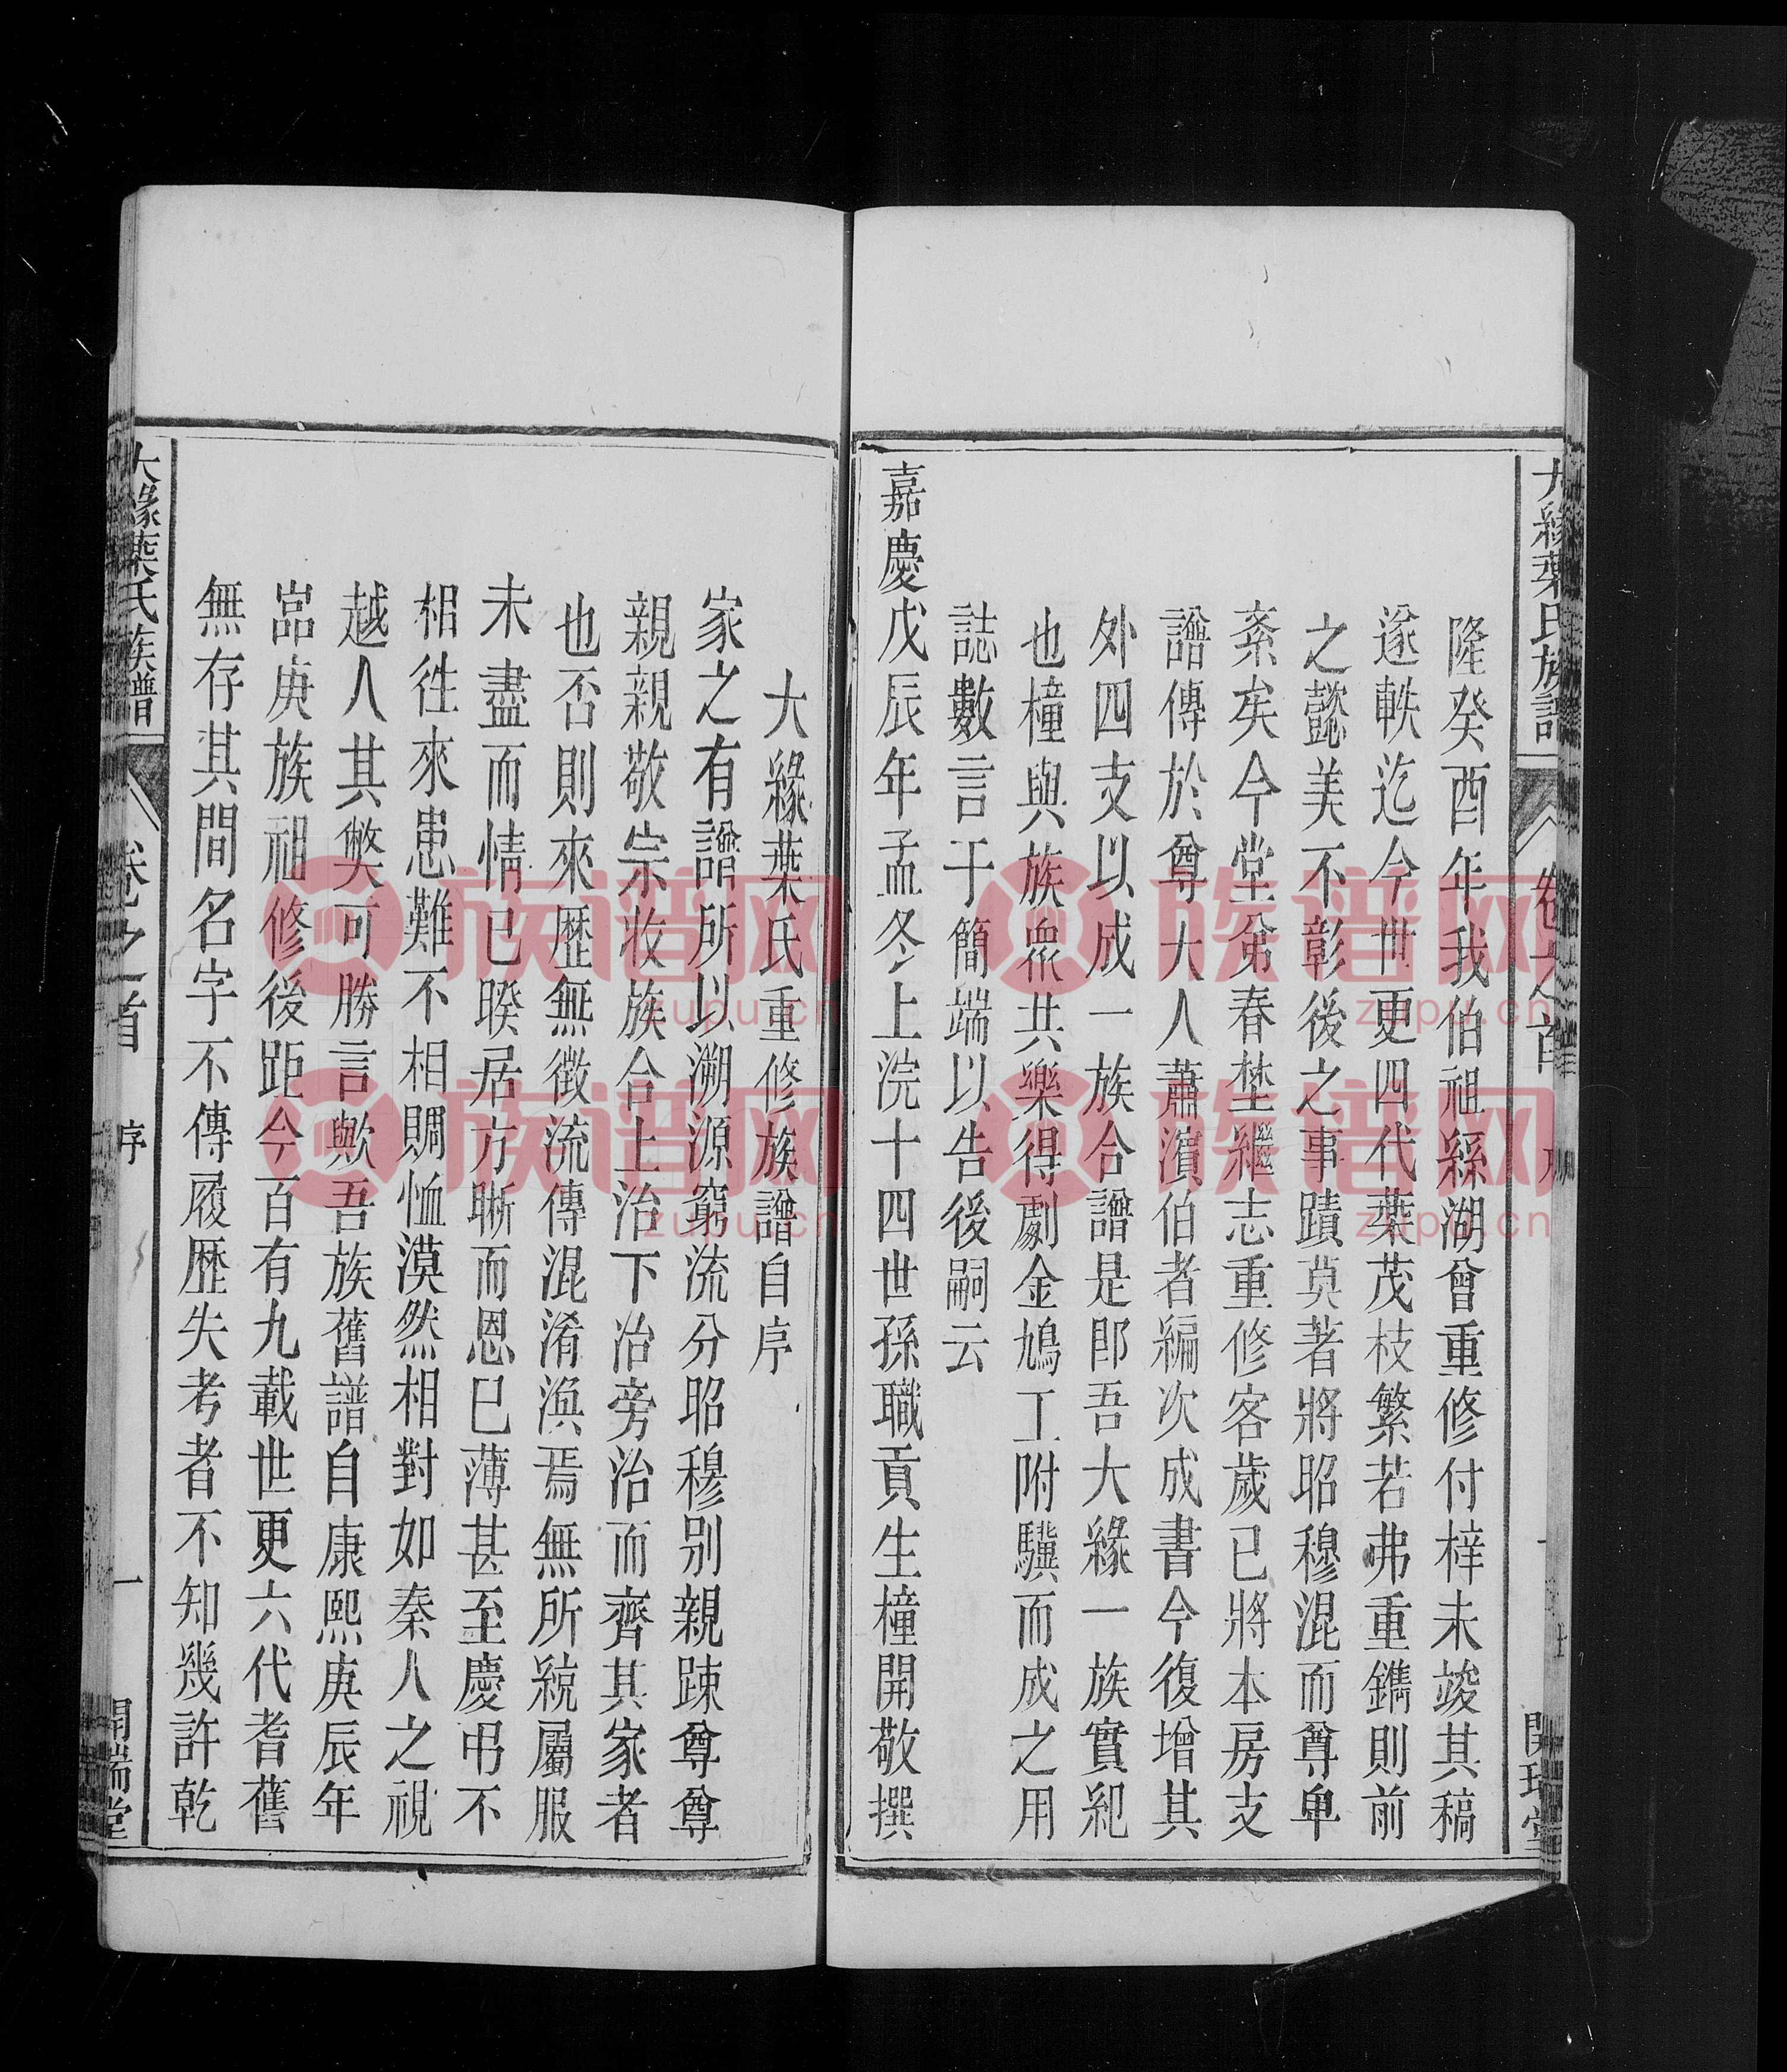 大緣葉氏族譜
卷之首
開瑞堂
隆癸酉年我伯祖縣湖曾重修付梓未竣其稿
遂軼迄今世更四代葉茂枝繁若弗重鐫則前
之懿美不彰後之事蹟莫著將昭穆混而尊卑
紊矣今堂弟春埜繼志重修客歲已將本房支
譜傳於尊大人蕭濱伯者編次成書今復增其
外四支以成一族合譜是即吾大緣一族實紀
也橦與族眾共樂得劇金鳩工附驥而成之用
誌數言于簡端以告後嗣云
嘉慶戊辰年孟冬上浣十四世孫職貢生橦開敬撰
大緣葉氏重修族譜自序
家之有譜所以溯源窮流分昭穆別親踈尊尊
親親敬宗收族合上治下治旁治而齊其家者
也否則來歷無徵流傳混淆渙焉無所統屬服
未盡而情已暌居方晰而恩已薄甚至慶弔不
相徃來患難不相賙恤漠然相對如秦人之視
越人其獘可勝言歟吾族舊譜自康熙庚辰年
嵓庚族祖修後距今百有九載世更六代耆舊
無存其間名字不傳履歷失考者不知幾許乾
大緣葉氏族譜
卷之首
序
一
開瑞堂
族谱网
zupu.cn
族谱网
zupu.cn
族谱网
zupu.cn
族谱网
zupu.cn